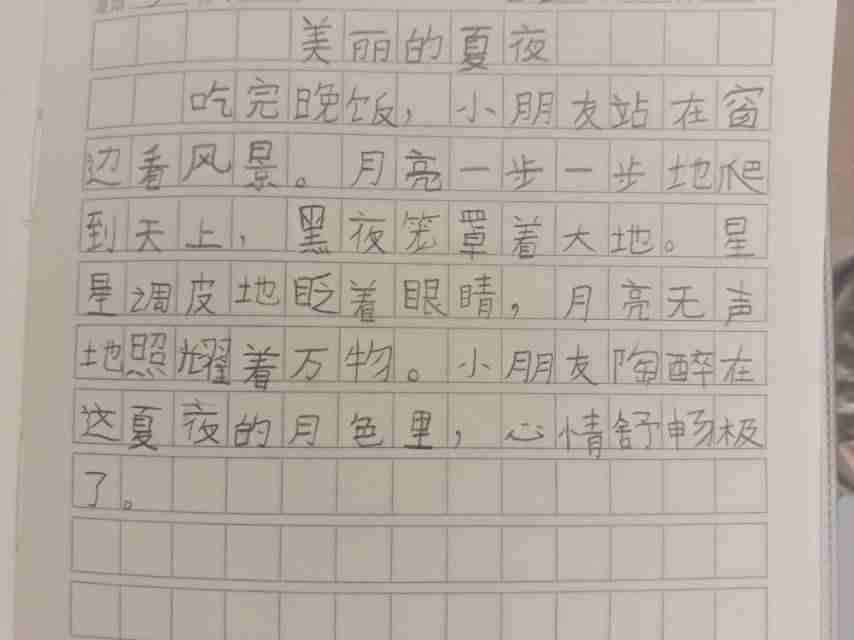 美丽的夏夜
吃完晚饭，小朋友站在窗
边看风景。月亮一步一步地爬
到天上，黑夜笼罩着大地。星
星调皮地眨着眼睛，月亮无声
地照耀着万物。小朋友陶醉在
这夏夜的月色里，心情舒畅极
了。